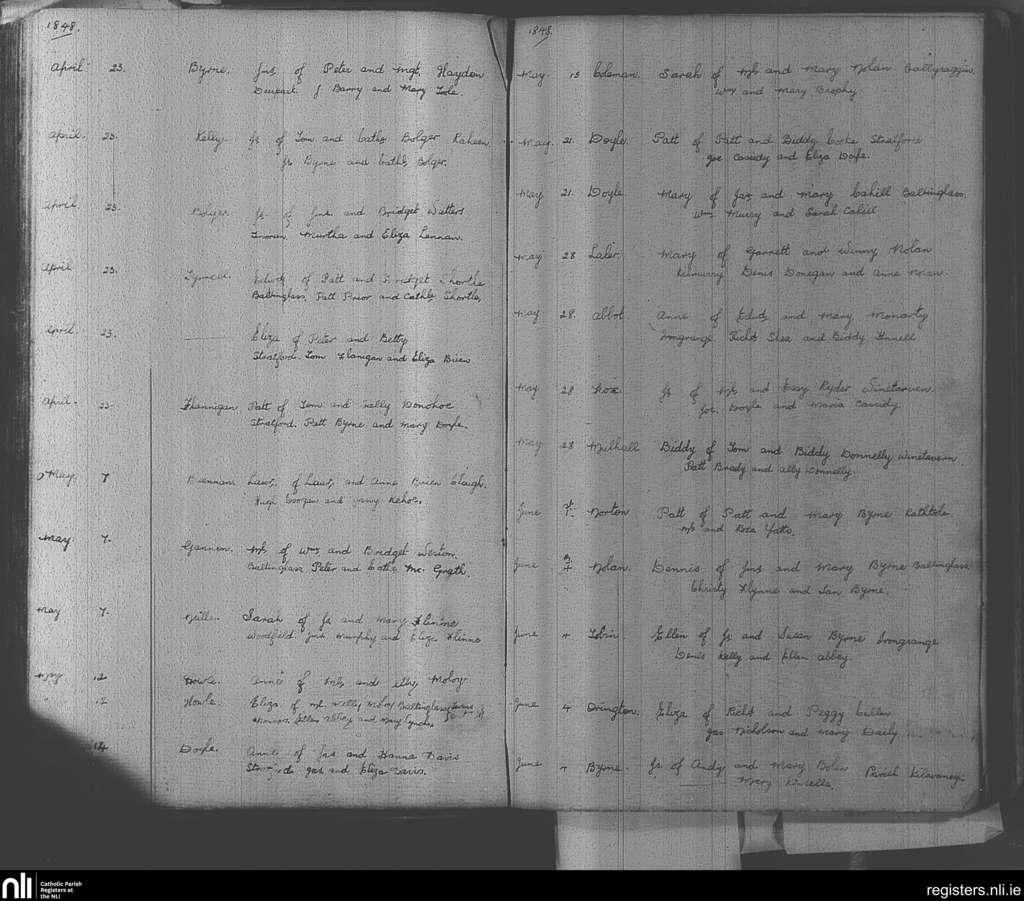 1848.
April 23. Byrne. Jno. of Peter and Mgt. Hayden
J Barry and Mary Toole.
April. 23. Kelly. Js. of Tom and Cath. Bolger Raheen
Js. Byrne and Cath. Bolger.
April. 23. Bolger. Js. of Jno. and Bridget Watters
Murtha and Eliza Lennan.
April 23. of Patt and Bridget Shortle
Baltinglass, Patt Prior and Cathe. Shortle.
April 23. Eliza of Peter and Betty
Stratford. Tom Flanigan and Eliza Brien
April. 23 Flannigan Patt of Tom and Sally Donohoe
Stratford. Patt Byrne and Mary Doyle.
May. 7 Brennan Laws. of Laws. and Anne Brien Clough.
Hugh and Kehoe.
May 7. Gannon. of Wm. and Bridget Weston.
Baltinglass Peter and Cathe Mc. Grath.
May 7. Sarah of Js and Mary Flinne
Woodfield Jno Murphy and Eliza Flinne
May 12 Howle. Anne of and Moloy
" 12 Howle. Eliza of Moloy Baltinglass
Ellen Abbey and Mary Lynch.
14 Doyle. Anne of Jas and Hanna Davis
Jas and Eliza Davis.
1848.
May 13 Coleman. Sarah of and Mary Nolan Ballyraggin.
Wm and Mary Brophy.
May. 21. Doyle. Patt of Patt and Biddy Cooke Stratford
Joe Cassidy and Eliza Doyle.
May 21. Doyle Mary of Jas and Mary Cahill Baltinglass.
Wm. Murry and Sarah Cahill
May 28 Laler. Mary of Garrett and Winny Nolan
Kilmurry Denis Donegan and Anne Nolan.
May 28. Abbot Anne of Edwd. and Mary Moriarty
Irongrange Richd Shea and Biddy Finnell
May 28 Js of and Essy Ryder Winetavern.
Jos. Doyle and Maria Cassidy.
May 28 Mulhall Biddy of Tom and Biddy Donnelly Winetavern
Patt Brady and Ally Donnelly.
June 1st. Norton Patt of Patt and Mary Byrne Rathtole
and Rosa Yatts.
June 4 Nolan. Dennis of Jno. and Mary Byrne Baltinglass
Christy Flynne and Byrne.
June 4 Tobin. Ellen of Js and Susan Byrne Irongrange
Denis Kelly and Ellen Abbey.
June 4 Drington. Eliza of Richd and Peggy Cullen
Nicholson and Mary Daily
June 4 Byrne. Js. of Andy and Mary Parish Kilaveney.
Mary
nli
Catholic Parish
Registers at
the NLI
registers.nli.ie